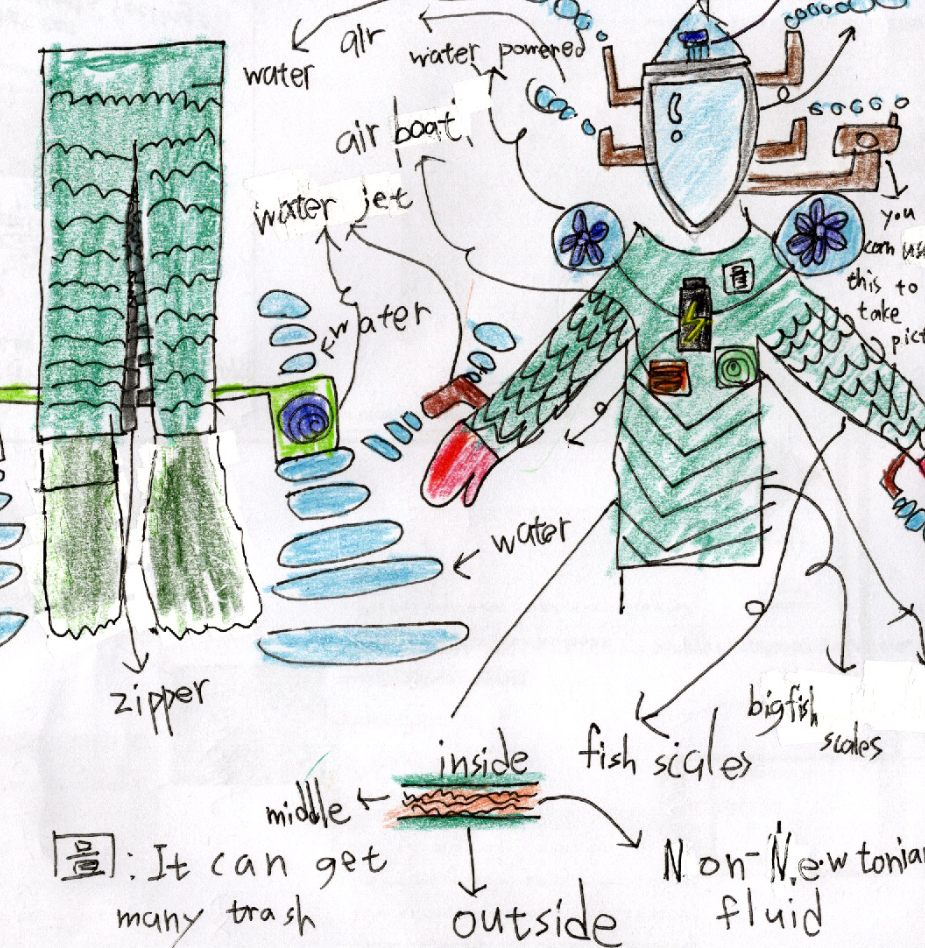 air
water
water powered
air boat
water jet
water
you
can use
this to
take
water
zipper
fish scales
bigfish
scales
inside
middle
outside
Non-Newtonian
fluid
: It can get
many trash